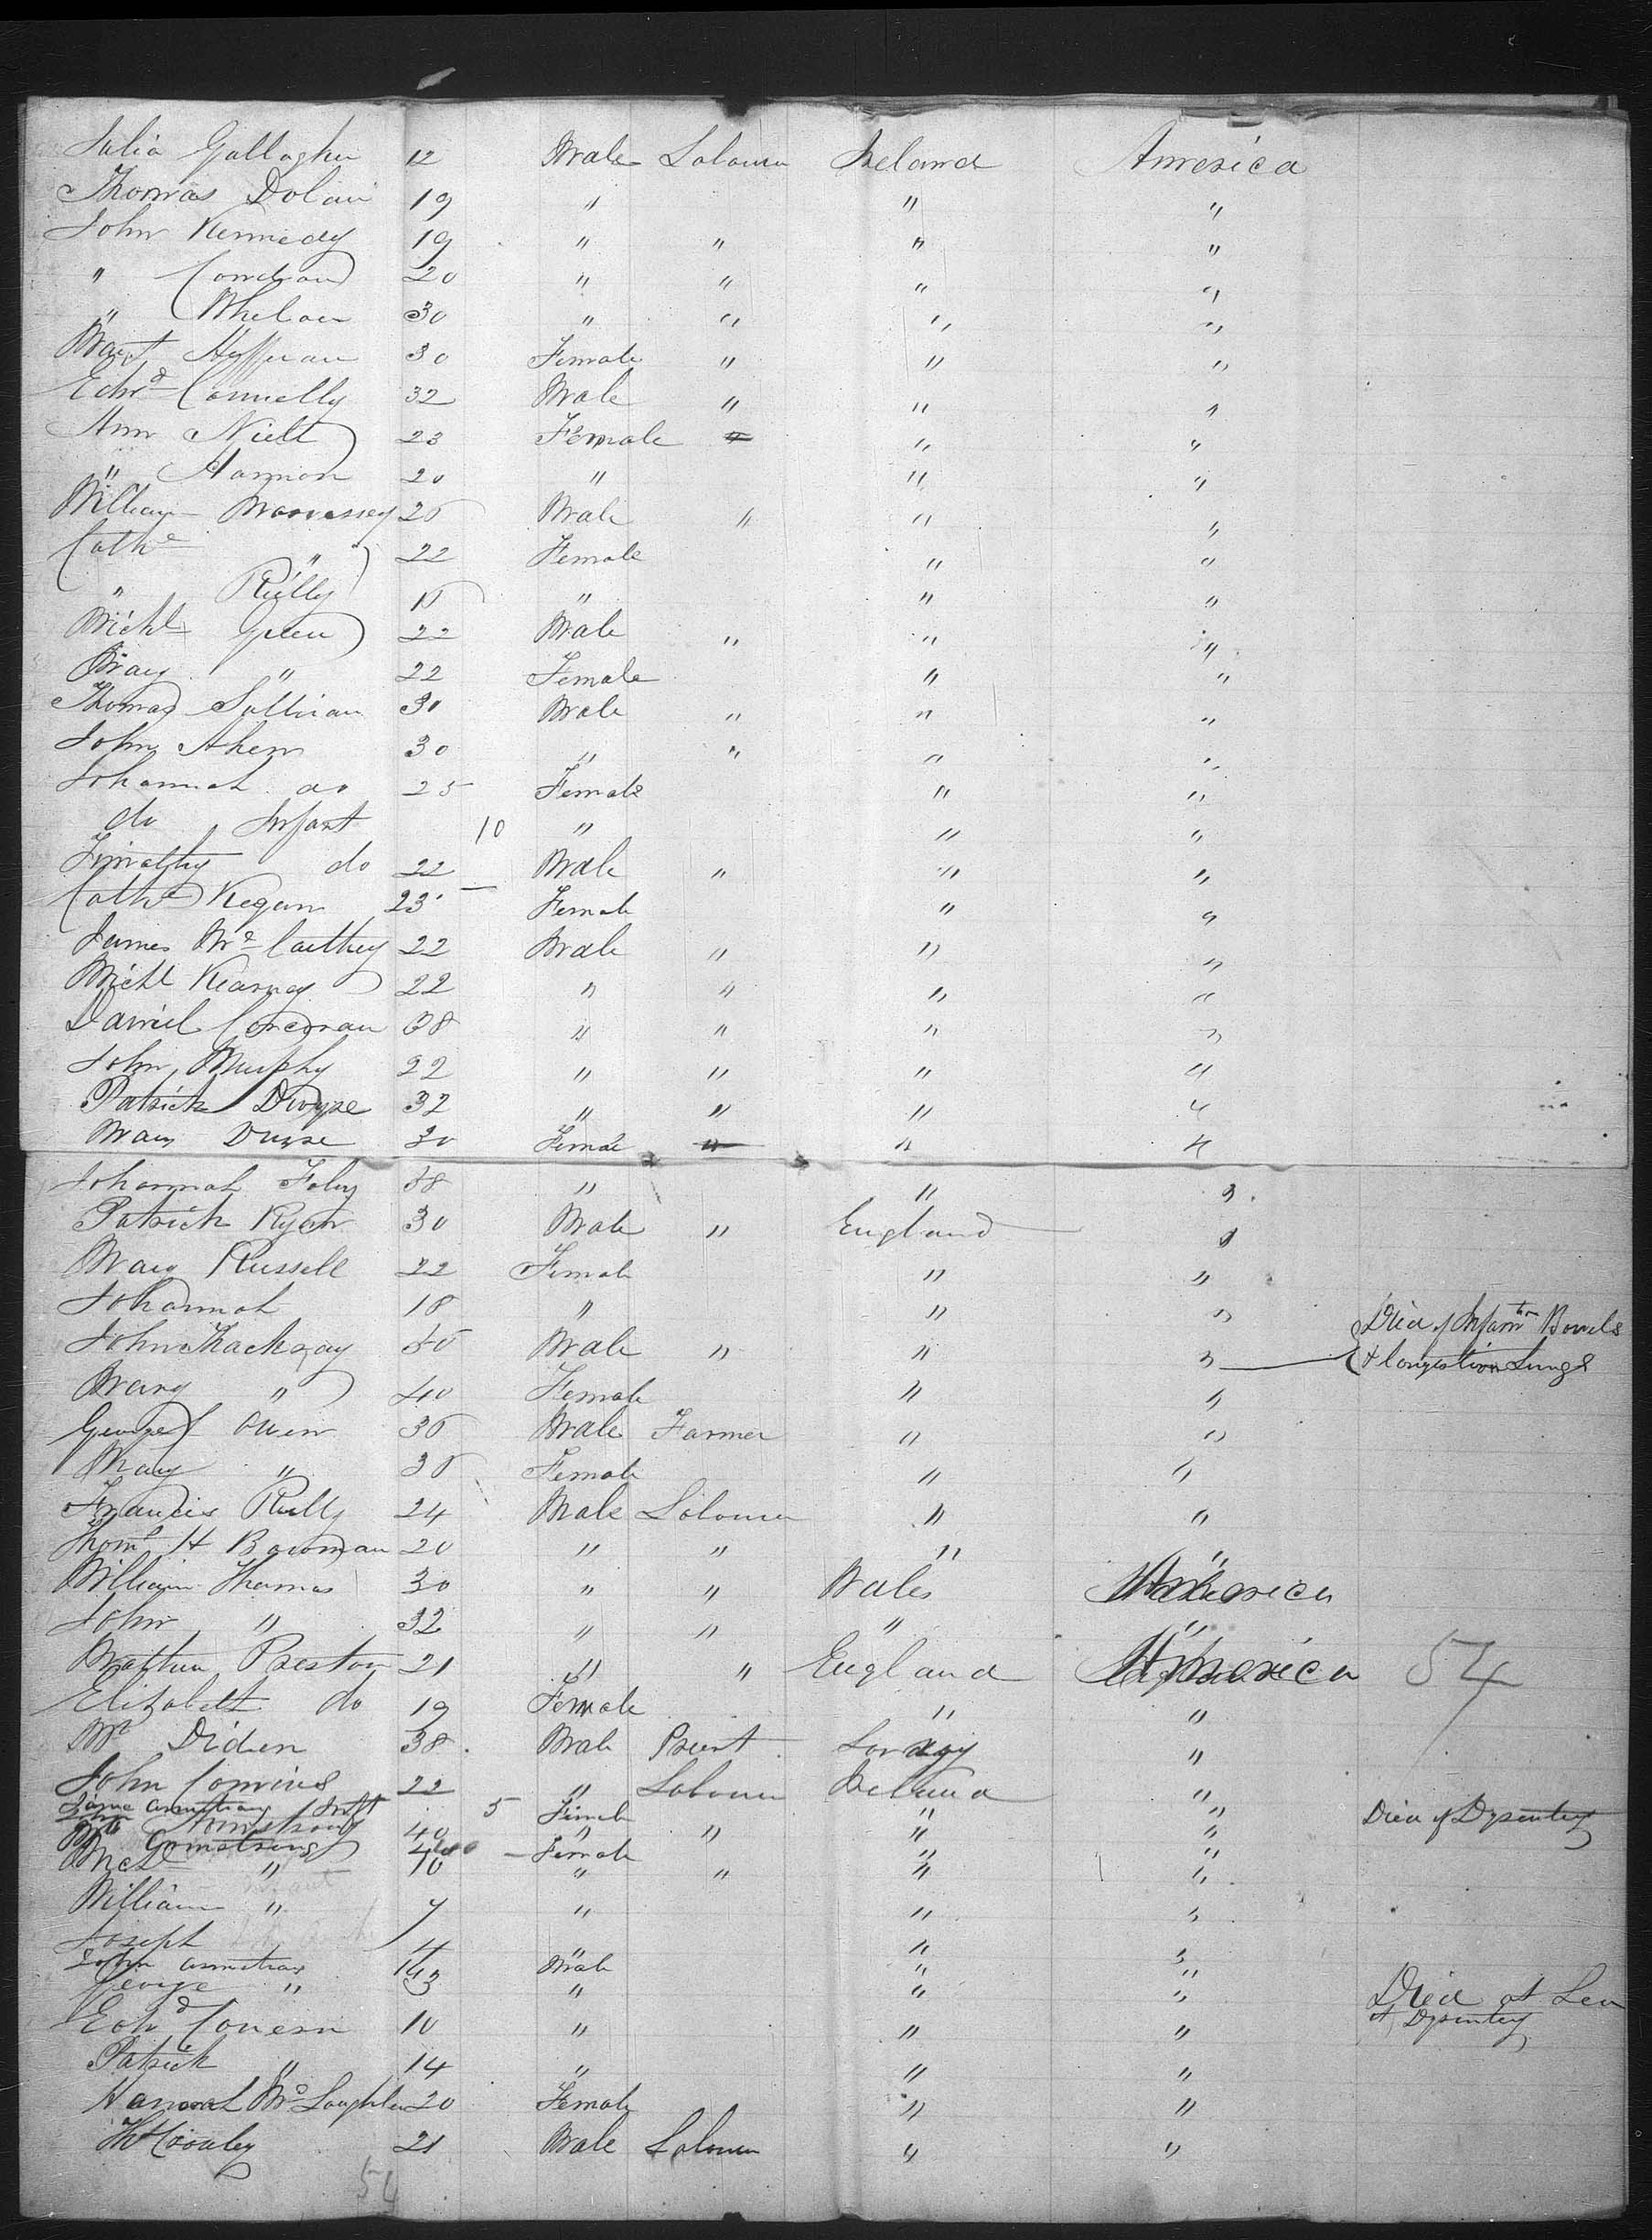 Julia Gallagher 12 Male Laborer Ireland America
Thomas Dolan 19 " " "
John Kennedy 19 " " " "
" Condran 20 " " " "
" Whelan 30 " " " "
Margt Heffernan 30 Female " " "
Edwd Connelly 32 Male " " "
Ann Niell 23 Female " " "
" Hannon 20 " " "
William 25 Male " " "
Cathe " 22 Female " "
" Rielly 15 " " "
Michl Green 22 Male " " "
Mary " 22 Female " "
Thomas Sullivan 30 Male " " "
John Ahern 30 " " " "
Johannah do 25 Female " "
do Infant 10 " " "
Timothy do 22 Male " " "
Cathe Kegan 23 Female " "
James McCarthy 22 Male " " "
Michl Kearney 22 " " " "
Daniel Corcoran 38 " " " "
John Murphy 22 " " " "
Patrick Dwyre 32 " " " "
Mary Dwyre 30 Female " " "
Johannah Foley 38 " " "
Patrick Ryan 30 Male " England "
Mary Russell 22 Female " "
Johannah 18 " " "
John Thackray 45 Male " " " Died of Inflamtn Bowels
& Congestion Lungs
Mary " 40 Female " "
George Owen 35 Male Farmer " "
Mary " 35 Female " "
Francis Rielly 24 Male Laborer " "
Thoms H Bowman 20 " " " "
William Thomas 30 " " Wales America
John " 32 " " " "
Matthew Preston 21 " " England America 54
Elizabeth do 19 Female " "
Mr Didien 38 Male Priest "
John Comins 22 " Laborer Ireland "
Jane Armstrong Inft 5 Female " " Died of Dysentery
John Armstrong 40 " " " "
Armstrong 40 Female " "
" 10 " " " "
William " 7 " " "
Joseph 4 " " "
John Armstrong 14 Male " "
George " 3 " " " Died at Sea
of Dysentery
Edwd Covern 10 " " "
Patrick " 14 " " "
Hannah McLaughlin 20 Female " "
Crowley 21 Male Laborer " "
54